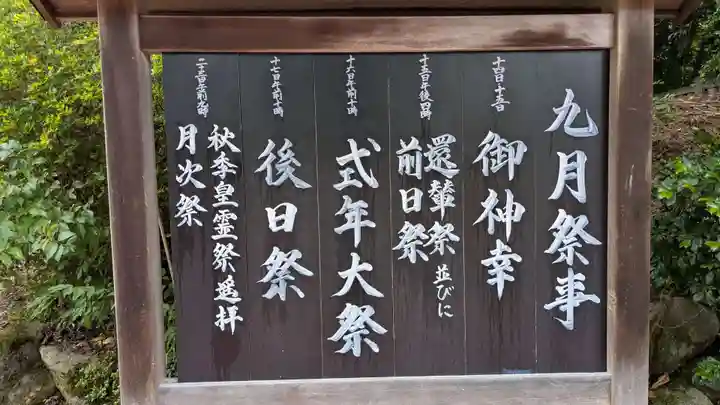 九月祭事
十四日十五日
御神幸
十五日午後四時
還輦祭並びに
前日祭
十六日午前十時
式年大祭
十七日午前十時
後日祭
二十三日午前九時
秋季皇霊祭遥拝
月次祭